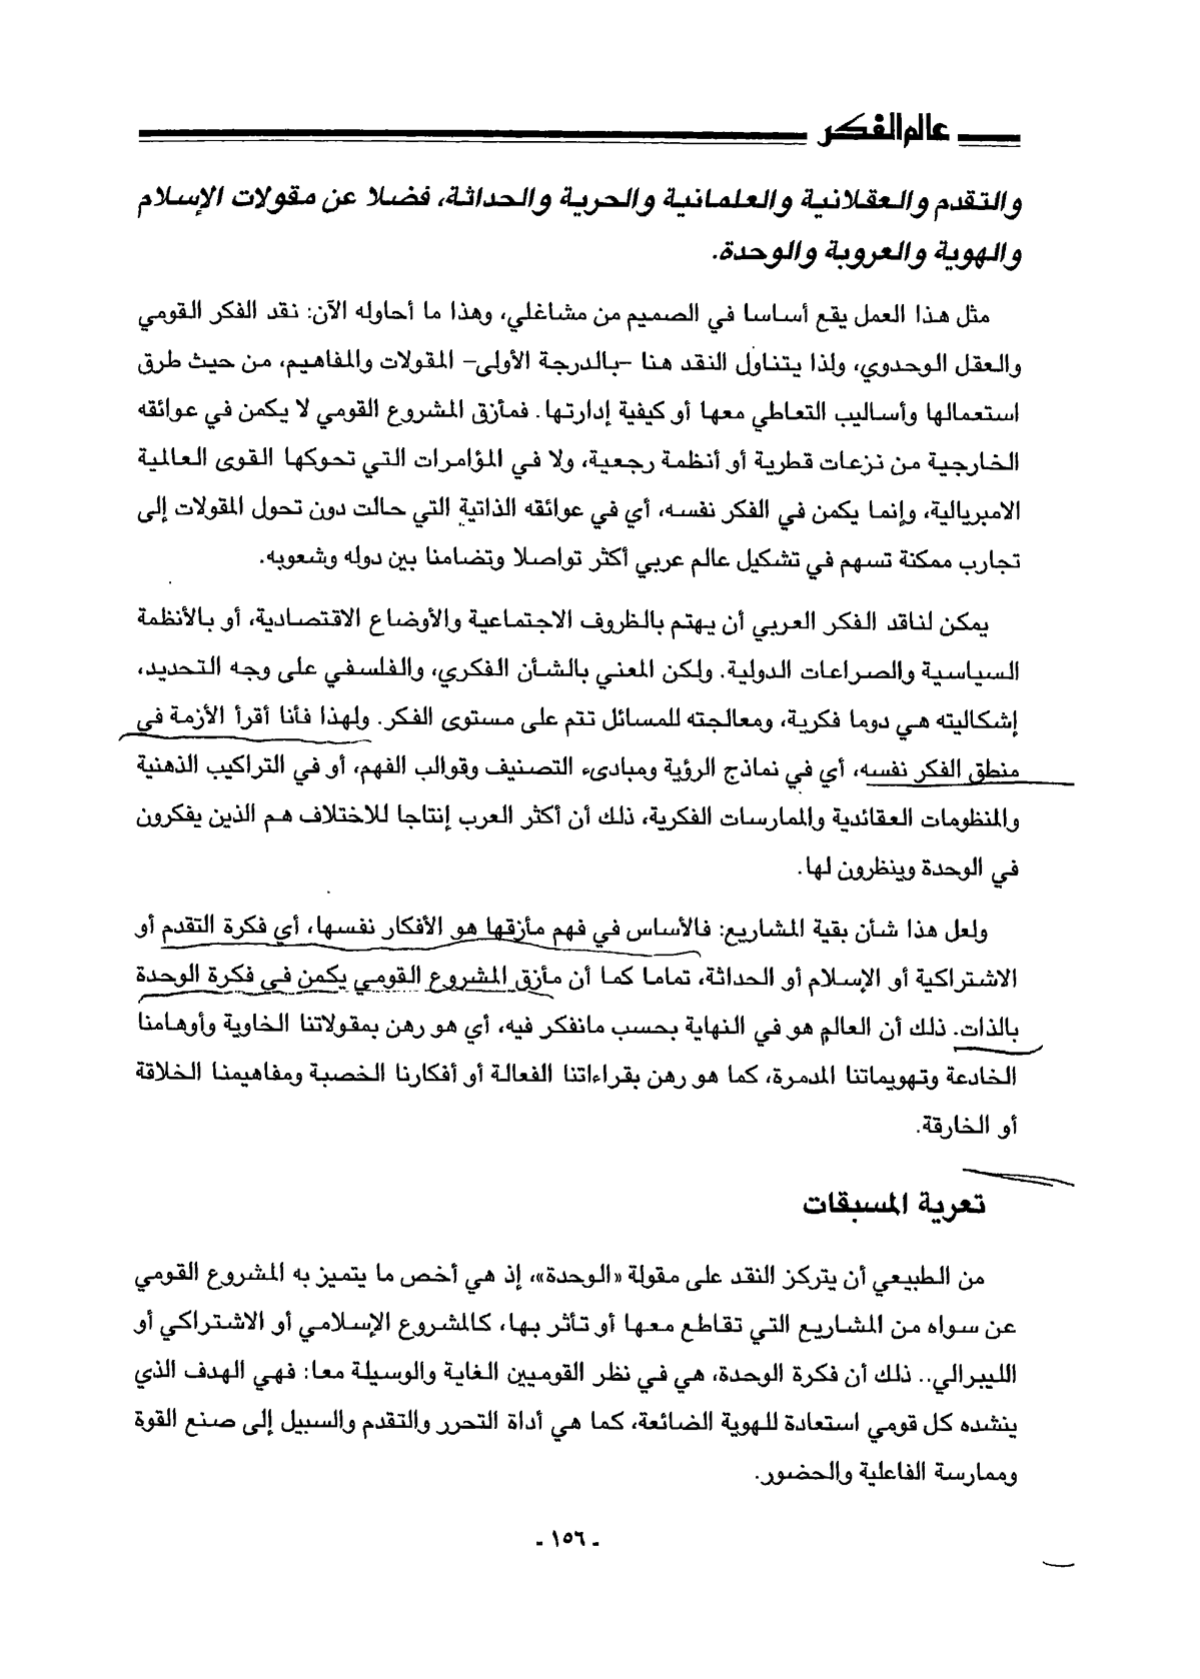 عالم الفكر
والتقدم والعقلانية والعلمانية والحرية والحداثة، فضلا عن مقولات الإسلام
والهوية والعروبة والوحدة.
مثل هذا العمل يقع أساسا في الصميم من مشاغلي، وهذا ما أحاوله الآن: نقد الفكر القومي
والعقل الوحدوي، ولذا يتناول النقد هنا -بالدرجة الأولى- المقولات والمفاهيم، من حيث طرق
استعمالها وأساليب التعاطي معها أو كيفية إدارتها. فمأزق المشروع القومي لا يكمن في عوائقه
الخارجية من نزعات قطرية أو أنظمة رجعية، ولا في المؤامرات التي تحوكها القوى العالمية
الامبريالية، وإنما يكمن في الفكر نفسه، أي في عوائقه الذاتية التي حالت دون تحول المقولات إلى
تجارب ممكنة تسهم في تشكيل عالم عربي أكثر تواصلا وتضامنا بين دوله وشعوبه.
يمكن لناقد الفكر العربي أن يهتم بالظروف الاجتماعية والأوضاع الاقتصادية، أو بالأنظمة
السياسية والصراعات الدولية. ولكن المعني بالشأن الفكري، والفلسفي على وجه التحديد،
إشكاليته هي دوما فكرية، ومعالجته للمسائل تتم على مستوى الفكر. ولهذا فأنا أقرأ الأزمة في
منطق الفكر نفسه، أي في نماذج الرؤية ومبادىء التصنيف وقوالب الفهم، أو في التراكيب الذهنية
والمنظومات العقائدية والممارسات الفكرية، ذلك أن أكثر العرب إنتاجا للاختلاف هم الذين يفكرون
في الوحدة وينظرون لها.
ولعل هذا شأن بقية المشاريع: فالأساس في فهم مأزقها هو الأفكار نفسها، أي فكرة التقدم أو
الاشتراكية أو الإسلام أو الحداثة، تماما كما أن مأزق المشروع القومي يكمن في فكرة الوحدة
بالذات. ذلك أن العالم هو في النهاية بحسب مانفكر فيه، أي هو رهن بمقولاتنا الخاوية وأوهامنا
الخادعة وتهويماتنا المدمرة، كما هو رهن بقراءاتنا الفعالة أو أفكارنا الخصبة ومفاهيمنا الخلاقة
أو الخارقة.
تعرية المسبقات
من الطبيعي أن يتركز النقد على مقولة «الوحدة»، إذ هي أخص ما يتميز به المشروع القومي
عن سواه من المشاريع التي تقاطع معها أو تأثر بها، كالمشروع الإسلامي أو الاشتراكي أو
الليبرالي.. ذلك أن فكرة الوحدة، هي في نظر القوميين الغاية والوسيلة معا: فهي الهدف الذي
ينشده كل قومي استعادة للهوية الضائعة، كما هي أداة التحرر والتقدم والسبيل إلى صنع القوة
وممارسة الفاعلية والحضور.
- ١٥٦ -